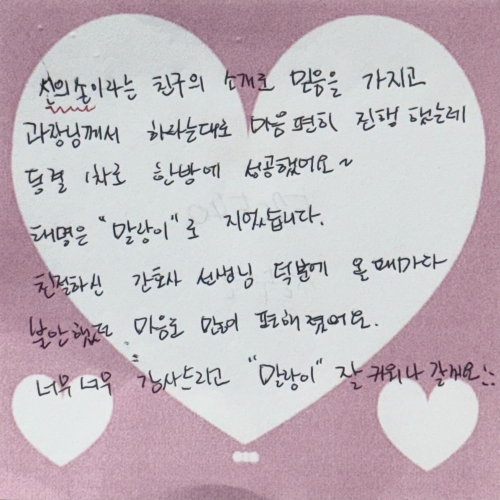 신의 손이라는 친구의 소개로 믿음을 가지고
과장님께서 하라는대로 마음 편히 진행 했는데
동결 1차로 한방에 성공했어요~
태명은 "말랑이"로 지었습니다.
친절하신 간호사 선생님 덕분에 올 때마다
불안했던 마음도 많이 편해졌어요.
너무너무 감사드리고 "말랑이" 잘 키워 나갈게요